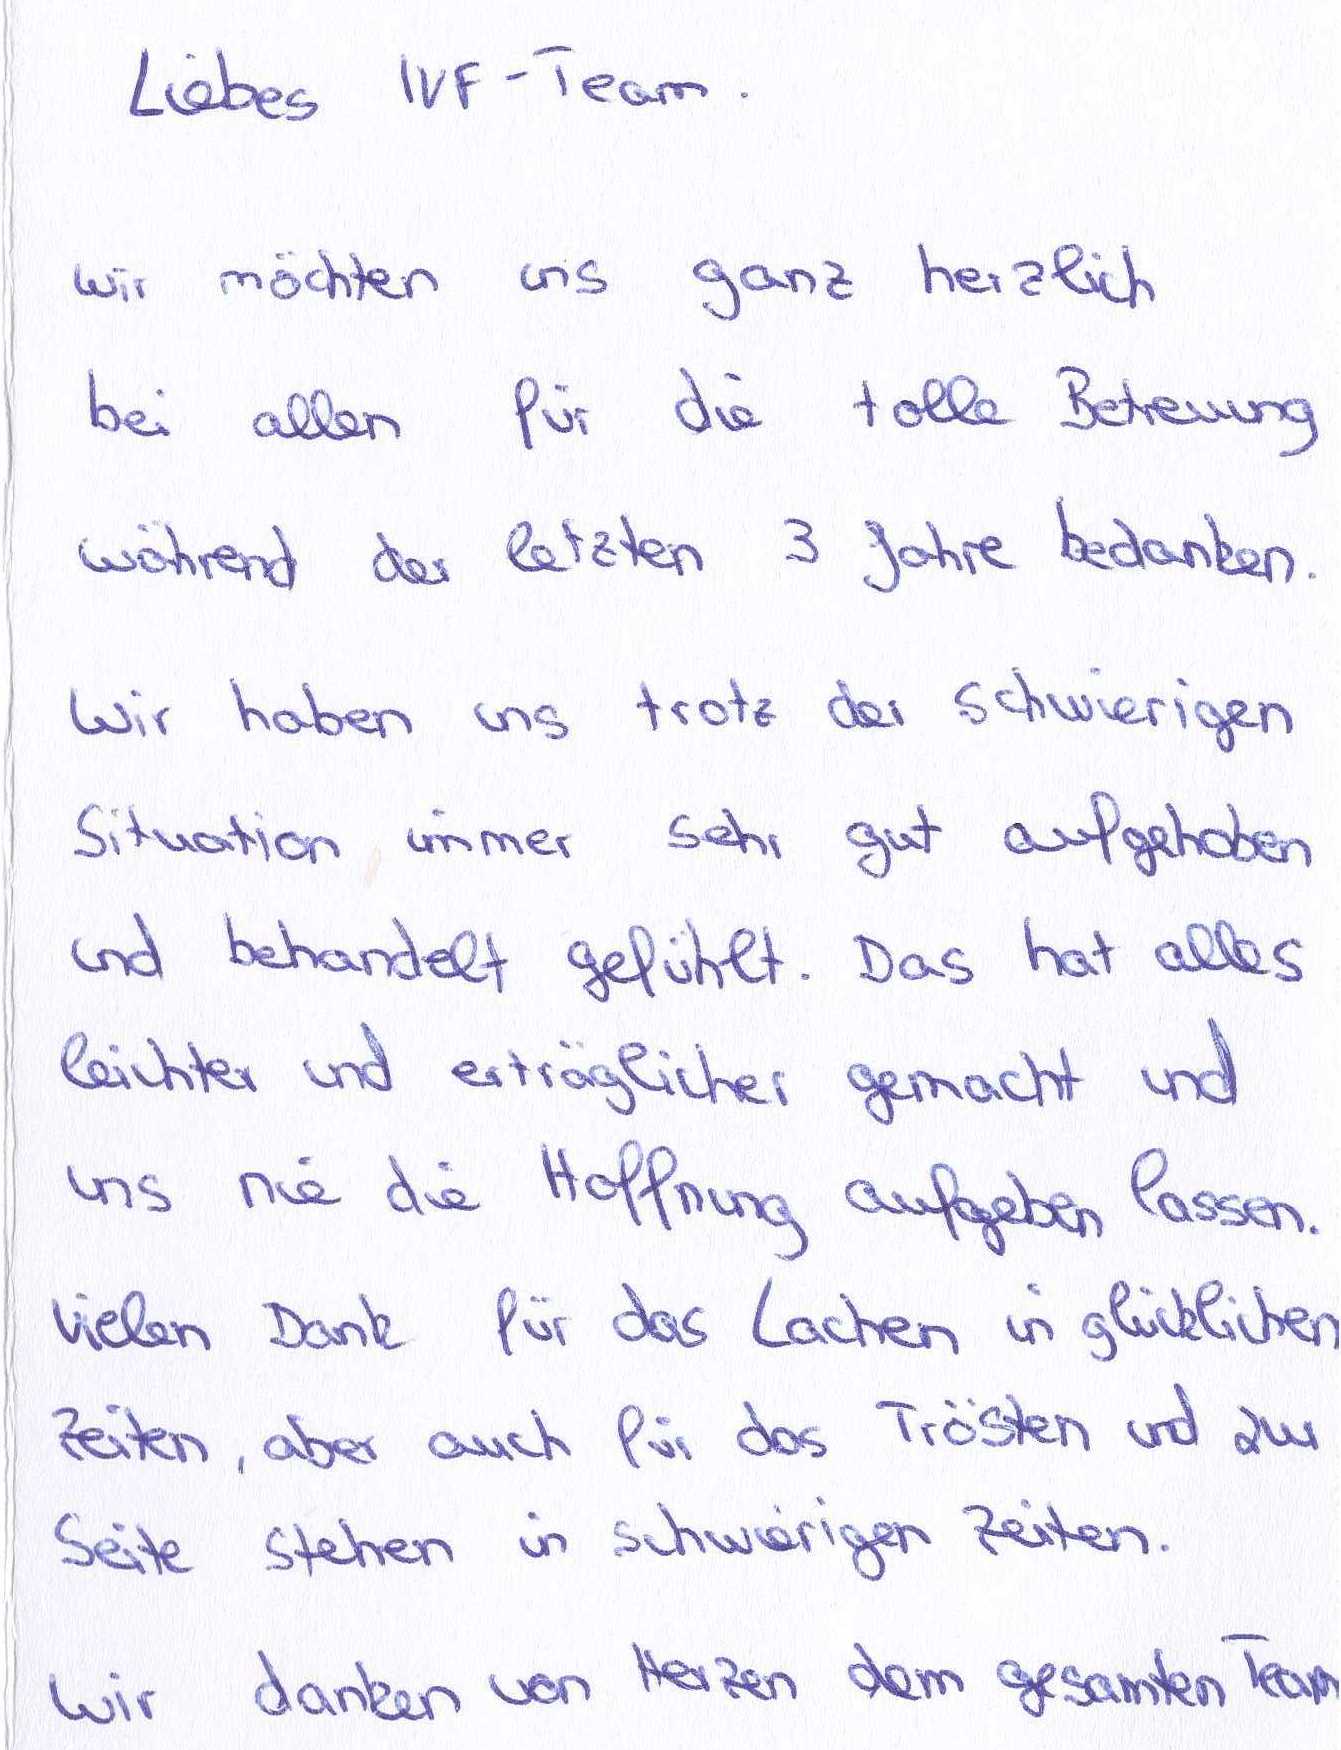 Liebes IVF-Team.
wir möchten uns ganz herzlich
bei allen für die tolle Betreuung
während der letzten 3 Jahre bedanken.
Wir haben uns trotz der schwierigen
Situation immer sehr gut aufgehoben
und behandelt gefühlt. Das hat alles
leichter und erträglicher gemacht und
uns nie die Hoffnung aufgeben lassen.
Vielen Dank für das Lachen in glücklichen
Zeiten, aber auch für das Trösten und zur
Seite stehen in schwierigen Zeiten.
Wir danken von Herzen dem gesamten Team